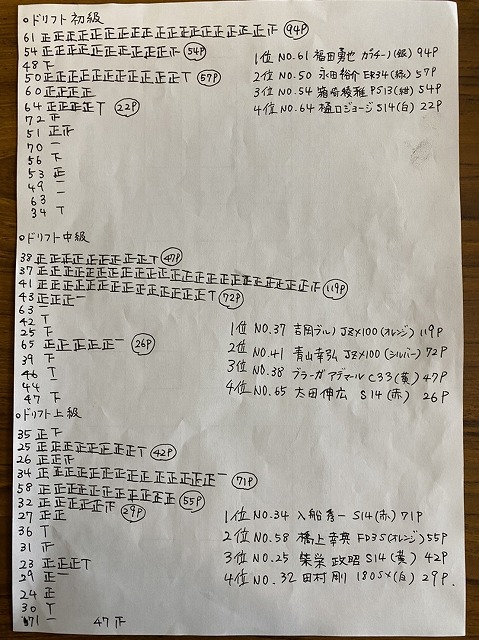 ○ドリフト初級
61 正正正正正正正正正正正正正正正正正正正 94P
54 正正正正正正正正正正正 54P
48 下
50 正正正正正正正正正正正T 57P
60 正正正正
64 正正正正T 22P
72 正
51 正正
70 一
56 下
53 正
49 一
63 一
34 T
1位 NO.61 福田勇也 ガチャーノ(銀) 94P
2位 NO.50 永田裕介 ER34(緑) 57P
3位 NO.54 箱崎稜雅 PS13(紺) 54P
4位 NO.64 樋口ジョージ S14(白) 22P
○ドリフト中級
38 正正正正正正正正正T 47P
37 正正正正正正正正正正正正正正正正正正正正正正正正 119P
41 正正正正正正正正正正正正正正T 72P
43 正正正一
63 一
42 T
25 下
65 正正正正正一 26P
39 下
46 T
44 一
47 下
1位 NO.37 吉岡ブルノ JZX100(オレンジ) 119P
2位 NO.41 青山幸弘 JZX100(シルバー) 72P
3位 NO.38 ブラーガ アデマール C33(黄) 47P
4位 NO.65 太田伸広 S14(赤) 26P
○ドリフト上級
35 正下
25 正正正正正正正正T 42P
26 正正
34 正正正正正正正正正正正正正正一 71P
58 正正正正正正正正正正正 55P
32 正正正正正正 29P
27 正正
36 T
31 正
23 正正正T
29 正一
24 正
30 T
71 一
47 正
1位 NO.34 入船秀一 S14(赤) 71P
2位 NO.58 橋上幸典 FD3S(オレンジ) 55P
3位 NO.25 柴栄政昭 S14(黄) 42P
4位 NO.32 田村剛 180SX(白) 29P.